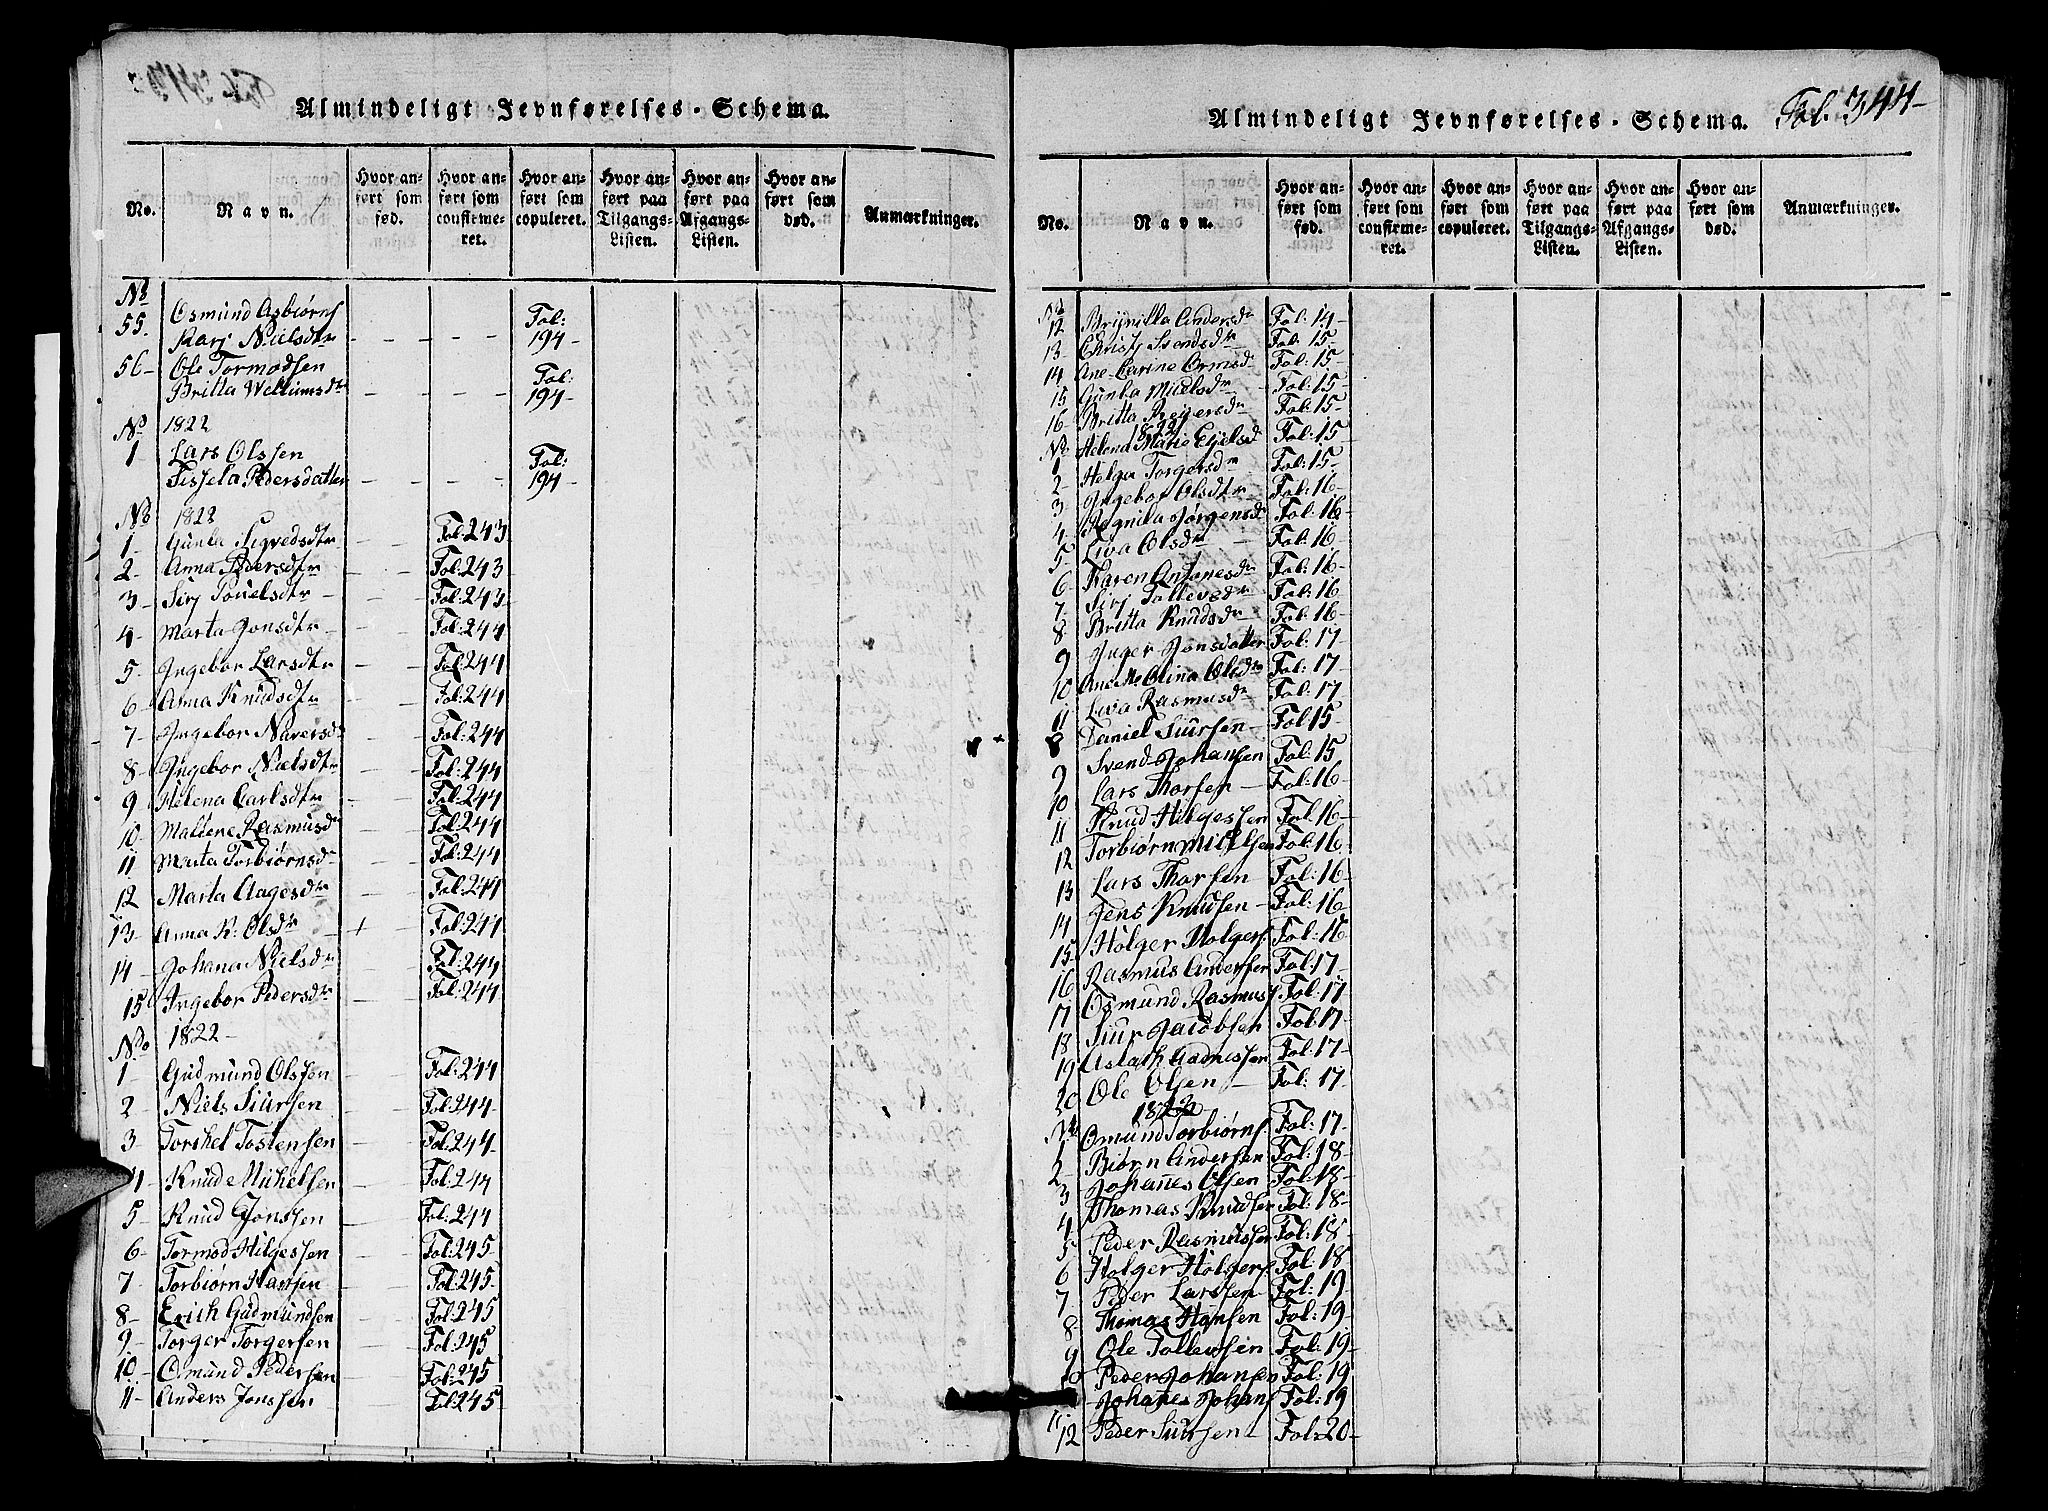 Almindeligt Jevnførelses-Schema.
No. Navn. Hvor anført som fød. Hvor anført som confirmeret. Hvor anført som copuleret. Hvor anført paa Tilgangs-Listen. Hvor anført paa Afgangs-Listen. Hvor anført som død. Anmærkninger.
No
55. Osmund Asbiørns Fol:
Karj Nielsdtr 194-
56- Ole Tormodsen Fol:
Britta Welliumsdr 194-
No 1822
1 Lars Olssen Fol:
Sissela Pedersdatter 194-
No 1822
1- Gunla Sigvedsdtr Fol:243
2- Anna Pedersdtr Fol:243
3- Sirj Pouelsdtr Fol:243
4- Marta Jonsdtr Fol:244
5- Ingebor Larsdtr Fol:244
6- Anna Knudsdtr Fol:244
7- Ingebor Naversdr Fol:244
8- Ingebor Nielsdtr Fol:244
9 Helena Carlsdtr Fol:244
10- Mallene Rasmusdr Fol:244
11 Marta Torbiørnsd Fol:244
12 Marta Aagesdtr Fol:244
13- Anna K: Olsdr + Fol:244
14- Johana Nielsdr Fol:244
15 Ingebor Pedersdr Fol:244
No 1822-
1- Gudmund Olssen Fol:244
2- Niels Siursen Fol:244
3- Torkel Tostensen Fol:244
4- Knud Michelsen Fol:244
5- Knud Jonssen Fol:244
6- Tormod Hilgessen Fol:245
7- Torbiørn Hansen Fol:245
8- Erich Gudmundsen Fol:245
9- Torger Torgersen Fol:245
10- Omund Pedersen Fol:245
11- Anders Jonssen Fol:245
Almindeligt Jevnførelses-Schema. Fol. 344-
No. Navn. Hvor anført som fød. Hvor anført som confirmeret. Hvor anført som copuleret. Hvor anført paa Tilgangs-Listen. Hvor anført paa Afgangs-Listen. Hvor anført som død. Anmærkninger.
No
12 Brynilla Andersdr Fol: 14-
13- Christj Svendsdtr Fol: 15-
14 Ane Carine Ormsd Fol: 15-
15 Gunla Nielsdr Fol: 15-
16- Britta Reijersdr Fol: 15-
No 1822
1 Helena Marie Ejelsd Fol: 15
2- Helga Torgersdr Fol: 15-
3 Ingebor Olsdtr Fol: 16-
4 Regnila Jørgensdr Fol: 16-
5 Liva Olsdr Fol: 16
6 Karen Antonesdr Fol: 16-
7 Sirj Tollevsdr Fol: 16-
8 Britta Knudsdr Fol: 16-
9 Inger Jonsdatter Fol: 17
10 Olina Olsdr Fol: 17
11 Liva Rasmusdr Fol: 17
8 Daniel Siursen Fol 15-
9 Svend Johansen Fol: 15
10 Lars Thorsen Fol: 16-
11 Knud Hilgessen Fol: 16-
12 Torbiørn Michelsen Fol: 16
13 Lars Thorsen Fol: 16
14 Jens Knudsen Fol: 16
15 Holger Holgers Fol: 16
16 Rasmus Andersen Fol:17-
17 Osmund Rasmuss Fol: 17
18 Siur Jacobsen Fol: 17
19 Aslach Gudmessen Fol: 17-
20 Ole Olsen Fol: 17-
1822
No
1 Omund Torbiørns Fol: 17-
2- Biørn Andersen Fol: 18-
3 Johannes Olsen Fol:18-
4 Thomas Knudsen Fol: 18-
5 Peder Rasmussen Fol: 18
6 Holger Holgers Fol: 18
7 Peder Larssen Fol: 19
8 Thomas Hansen Fol: 19-
9 Ole Tollevsen Fol: 19-
10 Peder Johansen Fol: 19
11 Johanes Johans Fol: 19
12 Peder Siursen Fol:20-